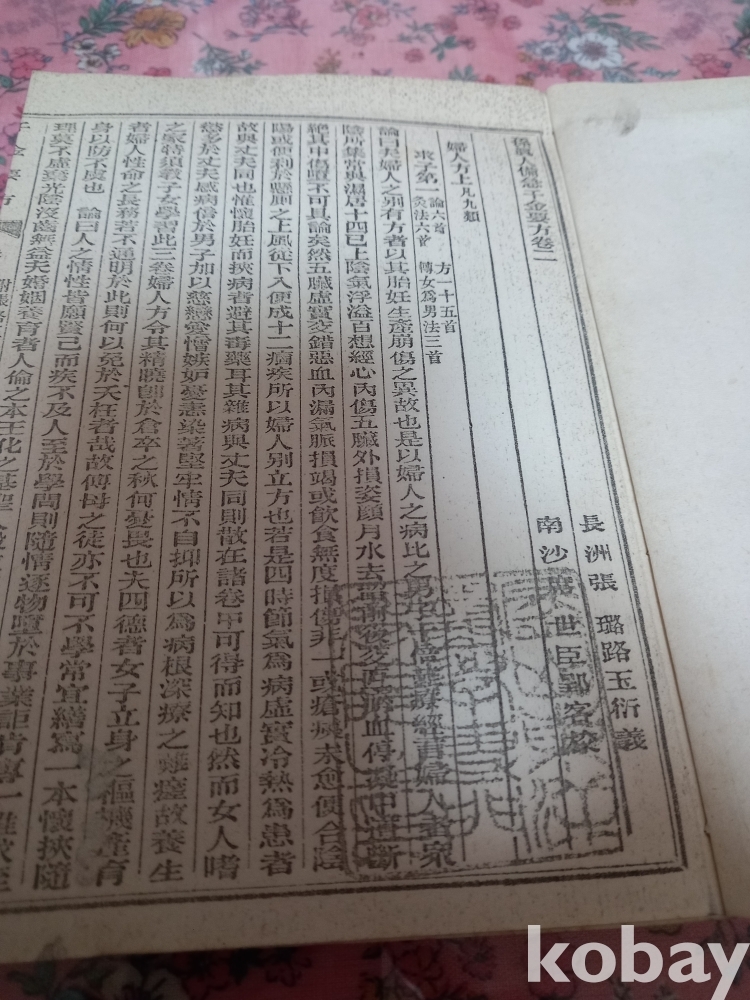 孫眞人備急千金要方卷二
長洲張　璐路玉衍義
南沙　世臣郢客校
婦人方上凡九類
求子第一論六首　方一十五首
灸法六首　轉女爲男法三首
論曰夫婦人之別有方者以其胎妊生產崩傷之異故也是以婦人之病比之男子十倍難療經言婦人者衆
陰所集常與濕居十四已上陰氣浮溢百想經心內傷五臟外損姿顏月水去留前後交互瘀血停凝中道斷
絕其中傷墮不可具論矣然五臟虛實交錯惡血內漏氣脈損竭或飲食無度損傷非一或瘡痍未愈便合陰
陽或便利於懸厠之上風從下入便成十二痼疾所以婦人別立方也若是四時節氣爲病虛實冷熱爲患者
故與丈夫同也惟懷胎妊而挾病者避其毒藥耳其雜病與丈夫同則散在諸卷中可得而知也然而女人嗜
慾多於丈夫感病倍於男子加以慈戀愛憎嫉妒憂恚染著堅牢情不自抑所以爲病根深療之難瘥故養生
之家特須敎子女學習此三卷婦人方令其精曉卽於倉卒之秋何憂畏也夫四德者女子立身之樞機產育
者婦人性命之長務若不通明於此則何以免於夭枉者哉故傅母之徒亦不可不學常宜繕寫一本懷挾隨
身以防不虞也　論曰人之情性皆願賢己而疾不及人至於學問則隨情逐物墮於事業詎肯專一推求至
理莫不虛棄光陰沒齒無益夫婚姻養育者人倫之本王化之基聖人
千金要方
kobay